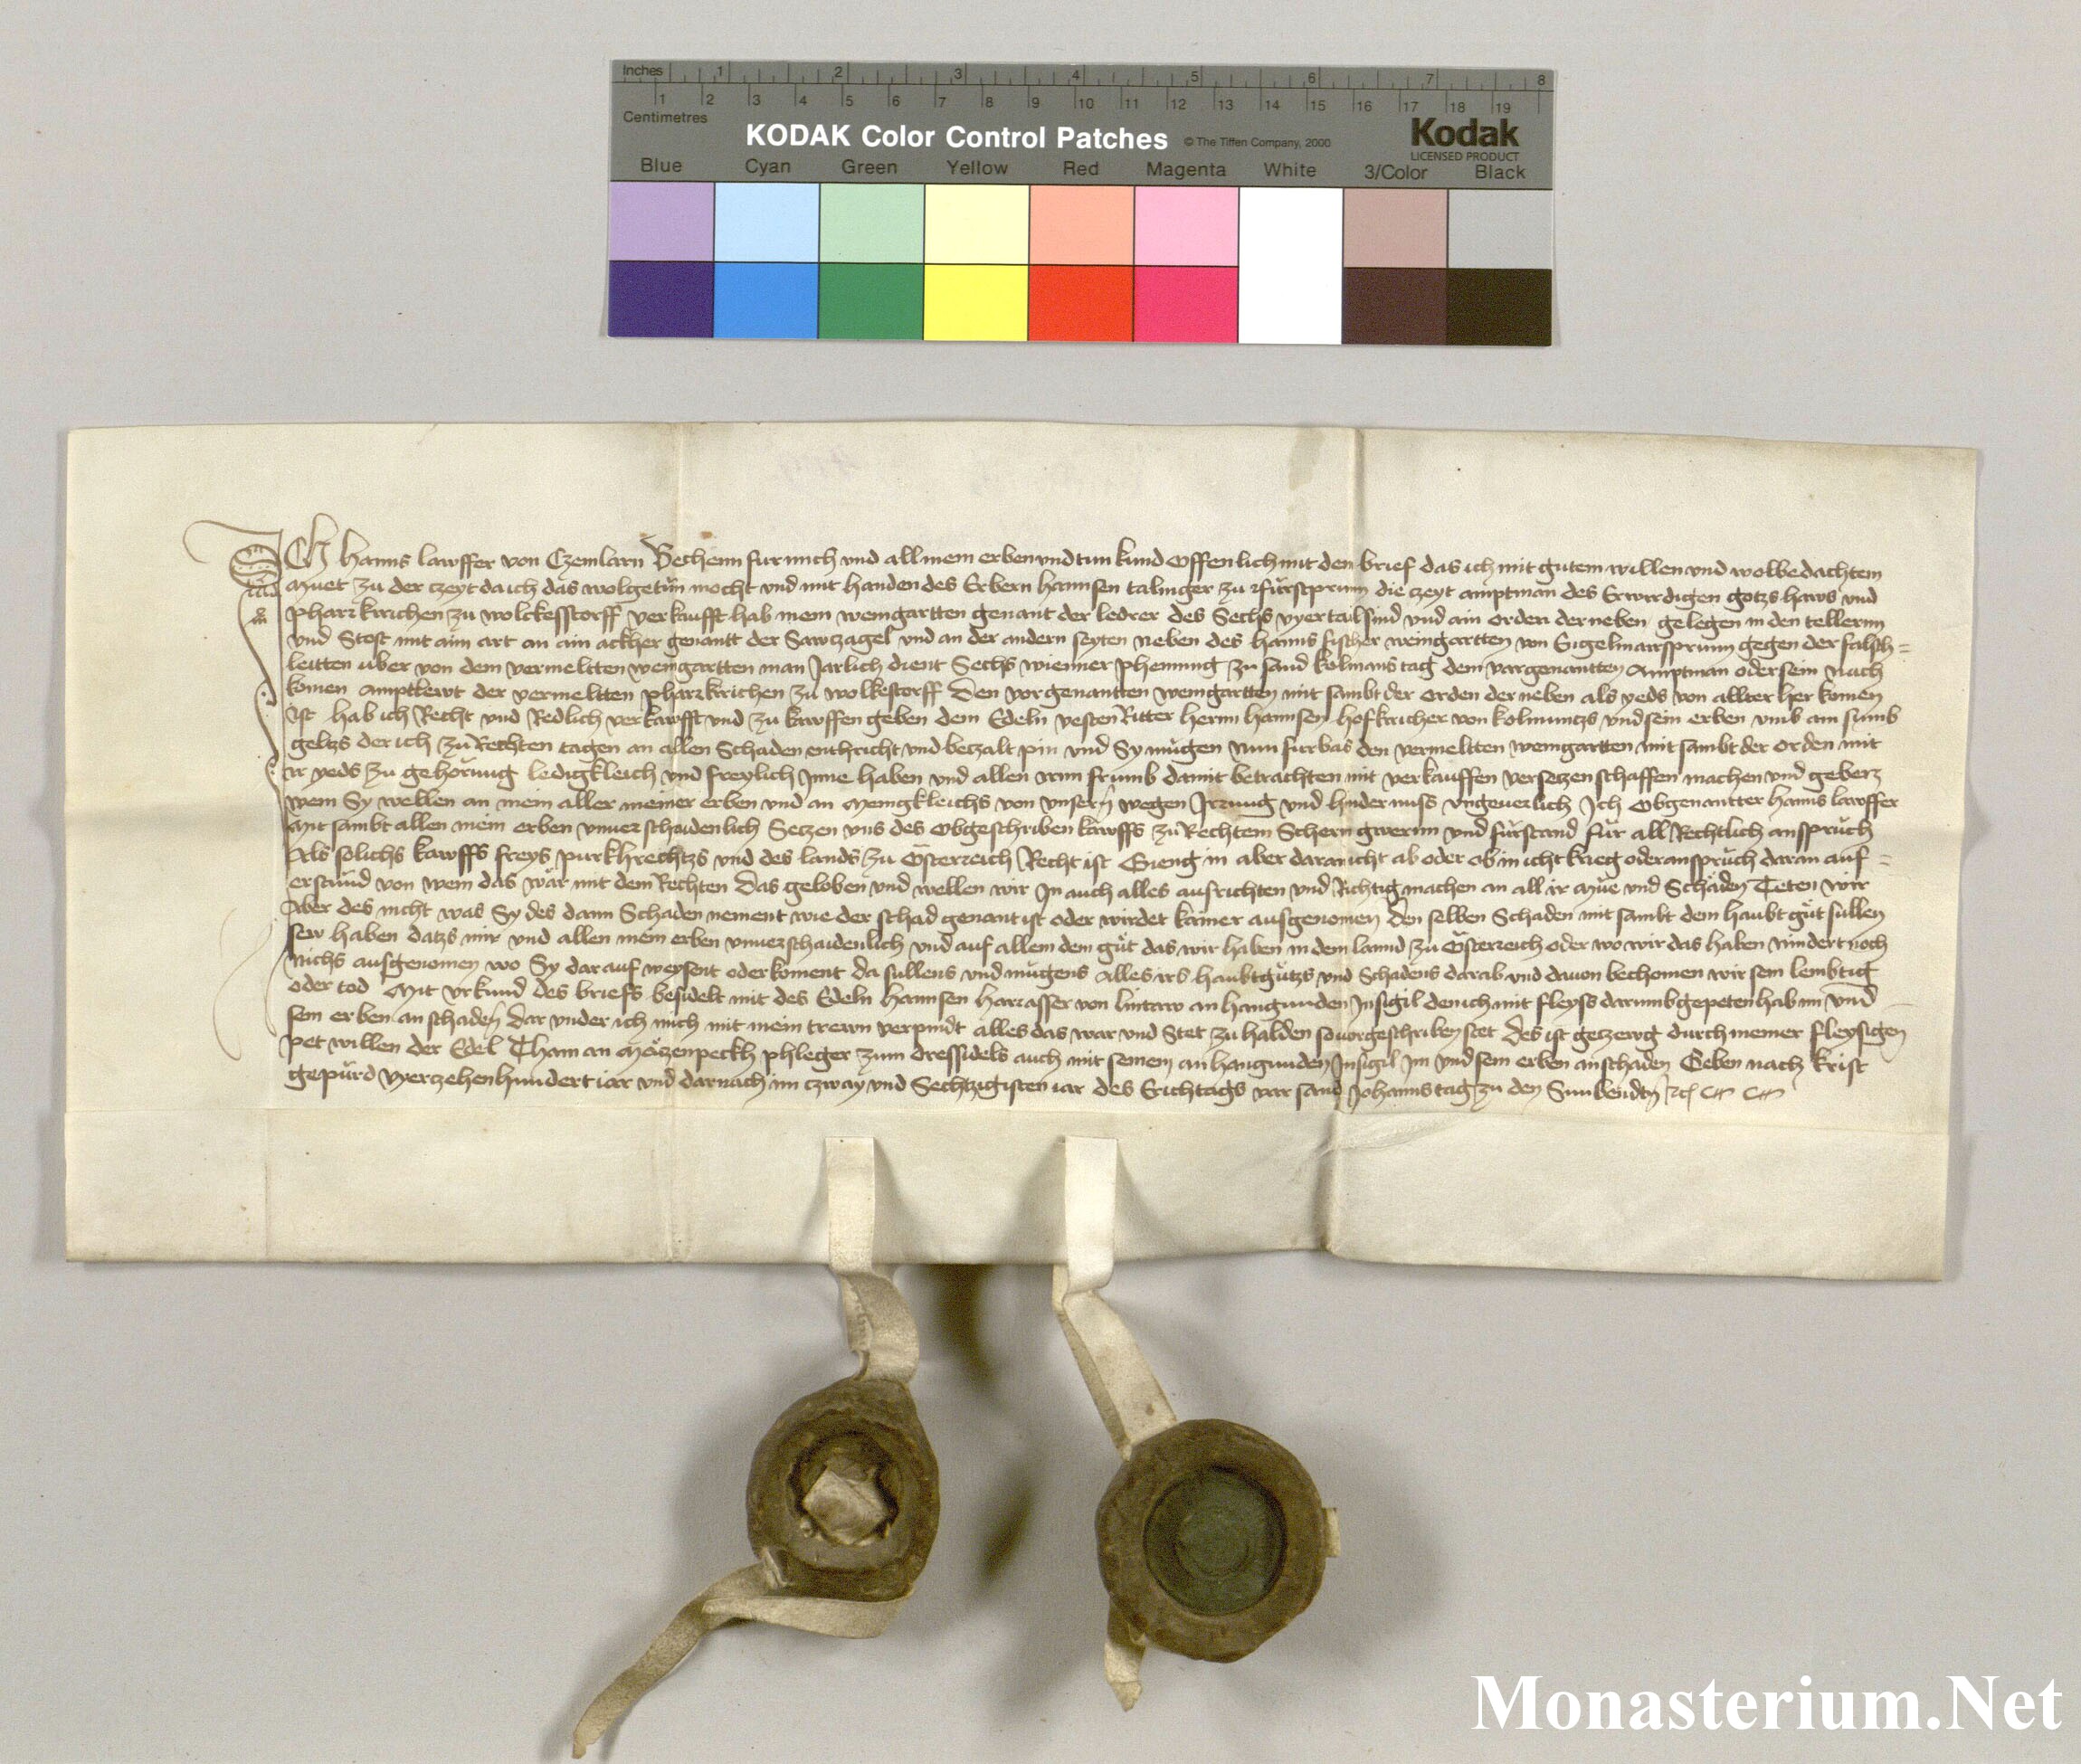 Inches 1 2 3 4 5 6 7 8
1 2 3 4 5 6 7 8 9 10 11 12 13 14 15 16 17 18 19
Centimetres
KODAK Color Control Patches © The Tiffen Company, 2000 Kodak
LICENSED PRODUCT
Blue Cyan Green Yellow Red Magenta White 3/Color Black
ICh Hanns lawffer von Czemlarn Bechenn fur mich und all mein erben und tun kund offenlich mit den brief das ich mit gutem willen und wolbedachtem
muet zu der czeyt da ich das wolgetun mocht und mit handen des Erbern Hannsen talinger zu die zeyt amptman des Erwirdigen gotzhaws und
pharrkirichen zu wolckesstorff verkaufft hab mein weingartten genant der ledrer des Sechs vyertail sind und ain orden derneben gelegen in den tellernn
und Stost mit aim art an ain ackher genantt der Sawzagel und an der andern seyten neben des Hanns fischer weingartten von Sigelmarsprunn gegen der falsch=
leitten uber von dem vermeltten weingartten man Jarlich dient Sechs wienner phenning zu sand kolmans tag dem vorgenantten Amptman oder sein nach
komen amptlewt der vermeltten pharrkirichen zu wolkestorff Den vorgenantten weingartten mit sambt der orden derneben als yeds von allter her komen
ist hab ich Recht und Redlich verkawfft und zu kawffen geben dem Edeln vesten Ritter hernn Hannsen hofkircher von kolmuntzs und sein erben umb ain sumb
geltzs der ich zu Rechten tagen an allen Schaden enthricht und beczalt pin und Sy mugen nun furbas den vermeltten weingartten mit sambt der orden mit
ir yeds zu gehorung ledigkleich und freylich Inne haben und allen irn frumb damit betrachten mit verkauffen versetzen schaffen machen und geben
wem Sy wellen an mein aller meiner erben und an menigkleichs von unsern wegen Irrung und hindernuss ungeuerlich Ich Obgenantter Hanns lawffer
mit sambt allen mein erben unuerschaidenlich Setzen uns des obgeschriben kawffs zu Rechtem Schern gwernn und furstand fur all Rechtlich anspruch
Als solichs kawffs freys purkhrechtzs und des lands zu Osterreich Recht ist Gieng in aber daran icht ab oder ob in icht krieg oder anspruch daran auf=
erstund von wem das war mit dem Rechten Das geloben und wellen wir In auch alles ausrichten und Richtig machen an all ir mue und Schaden Teten wir
Aber des nicht was Sy des dann Schaden nement wie der schad genant ist oder wirdet kainer ausgenomen Den selben Schaden mit sambt dem haubtgut sullen
sew haben datzs mir und allen mein erben unuerschaidenlich und auf allem dem gut das wir haben in dem lannd zu Osterreich oder wo wir das haben nindert noch
nichs ausgenomen wo Sy darauf weysent oder koment da sullens und mugens Alles irs haubtgutzs und Schadens darab und dauon bechomen wir sein lembtig
oder tod Mit urkund des briefs besidelt mit des Edeln Hannsen Harrasser von lintaw anhangunden Insigil den ich mit fleyss darumb gepeten hab im und
sein erben an schaden Dar under ich mich mit mein trewn verpindt alles das war und Stet zu halden so vorgeschriben stet Des ist geczewg durch meiner fleysigen
pet willen der Edel Thaman Matzenpeckh phleger zum auch mit seinem anhangunden Insigil Im und sein erben an schaden Geben nach krist
gepurd vyerzehenhundert iar und darnach im czway und Sechtzigisten iar des Erichtags vor sand Johanns tag zu den Sunbendten
Monasterium.Net